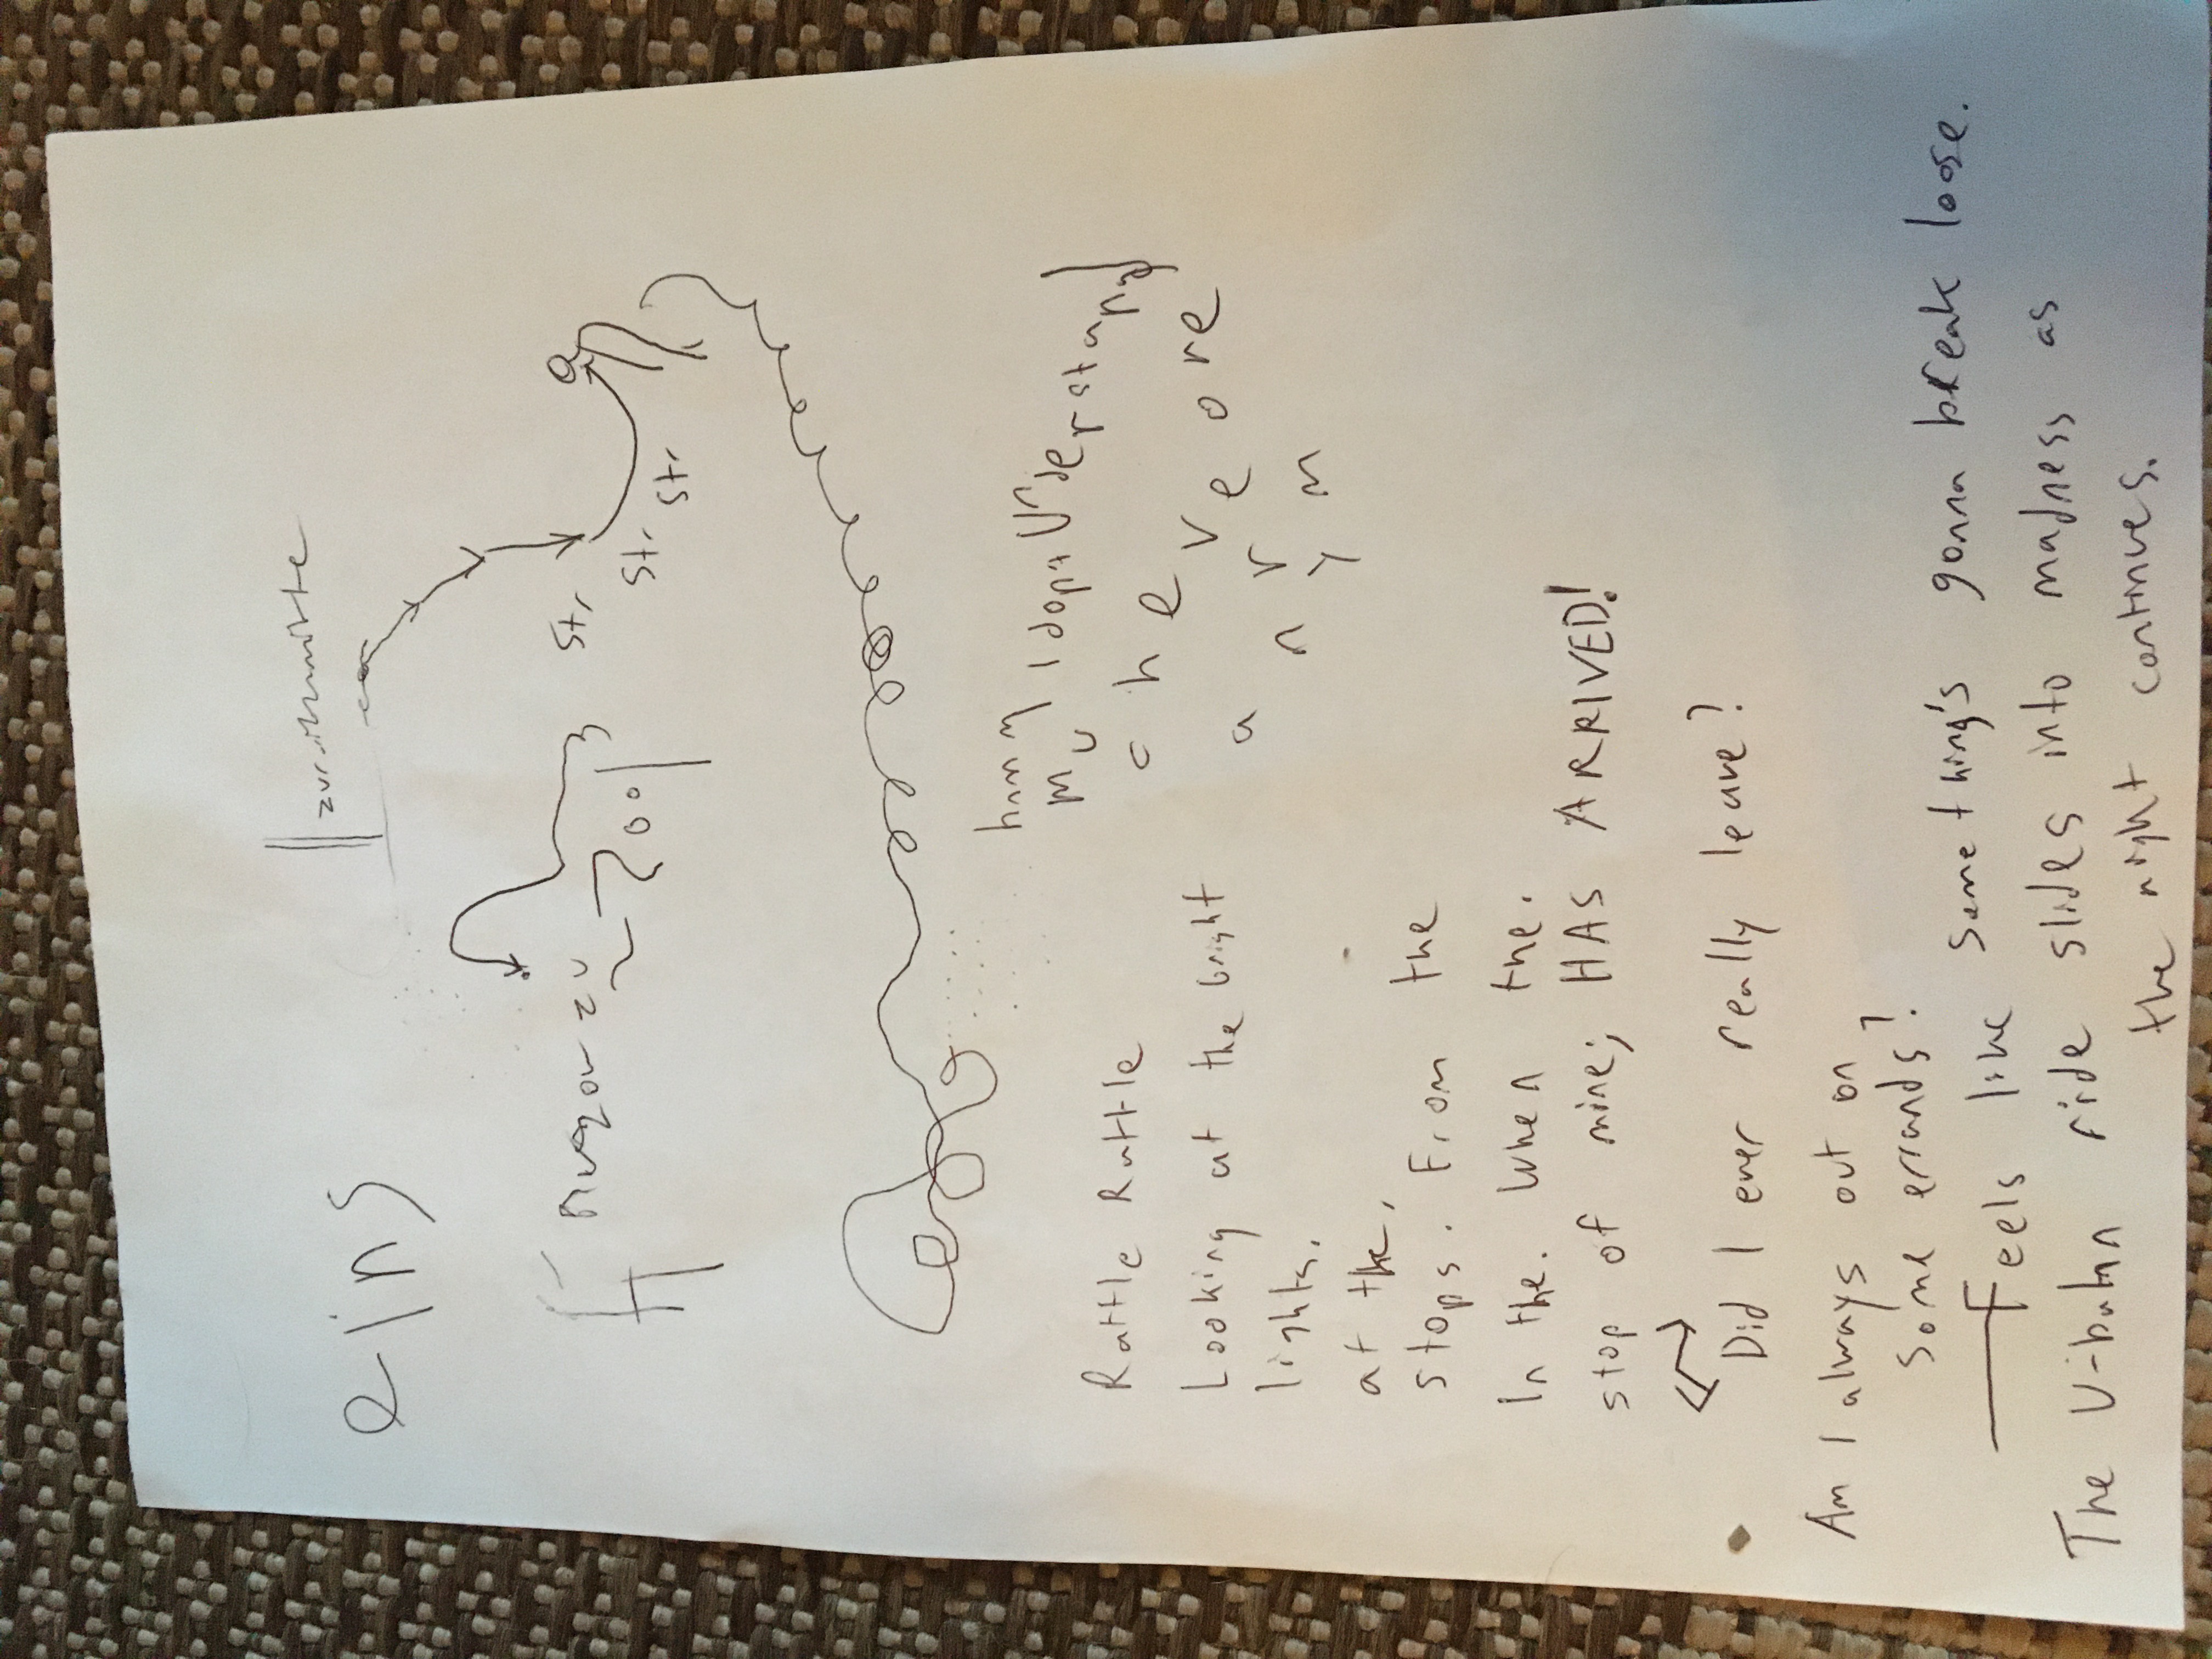 eins
zu
Zoo
Str
Str
Str
I don't Understand
Rattle Rattle
Looking at the bright
lights.
at the,
stops. From the
In the. When the.
stop of mine; HAS ARRIVED!
Did I ever really leave?
Am I always out on
some errands?
Feels like something's gonna break loose.
The U-bahn ride slides into madness as
the night continues.